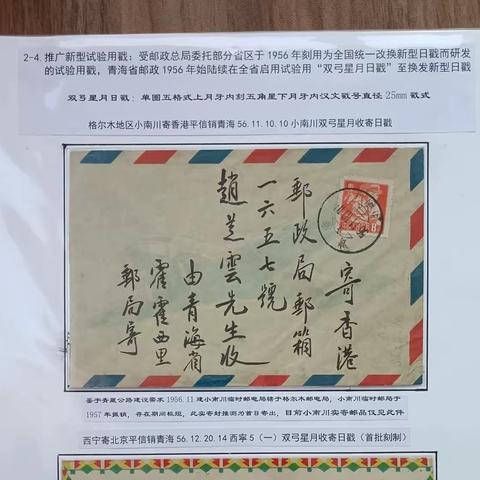 2-4. 推广新型试验用戳：受邮政总局委托部分省区于1956年刻用为全国统一改换新型日戳而研发
的试验用戳，青海省邮政1956年始陆续在全省启用试验用“双弓星月日戳”至换发新型日戳
双弓星月日戳：单圈五格式上月牙内刻五角星下月牙内汉文戳号直径25mm戳式
格尔木地区小南川寄香港平信销青海56.11.10.10小南川双弓星月收寄日戳
寄香港
郵政局郵箱
一六五七號
趙芝雲先生收
由青海省
霍霍西里
郵局寄
8
鉴于青藏公路建设需求1956.11.建小南川临时邮电局辖于格尔木邮电局，小南川临时邮局于
1957年撤销，存在期间极短，此实寄封推测为首日寄出，目前小南川实寄邮品仅见此件
西宁寄北京平信销青海56.12.20.14西寧5（一）双弓星月收寄日戳（首批刻制）